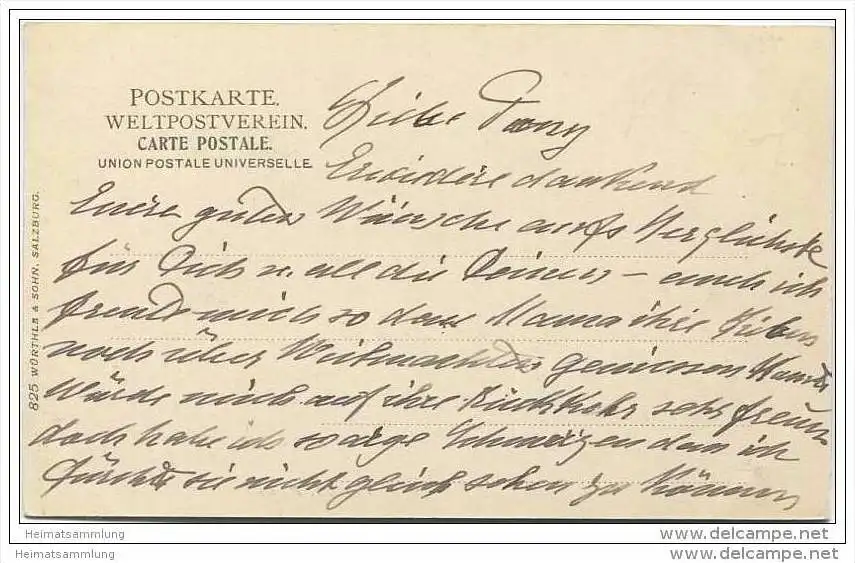 POSTKARTE.
WELTPOSTVEREIN.
CARTE POSTALE.
UNION POSTALE UNIVERSELLE.
825 WÜRTHLE & SOHN, SALZBURG.
Liebe
Erwidere dankend
Eure guten Wünsche aufs Herzlichste
für Dich u. all die Deinen – auch ich
freute mich so dass Mama ihre Lieben
noch über Weihnachten geniessen konnte
würde mich auf ihre Rückkehr sehr freuen
doch habe ich so arge Schmerzen dass ich
fürchte sie nicht gleich sehen zu können
Heimatsammlung
www.delcampe.net
Heimatsammlung
www.delcampe.net